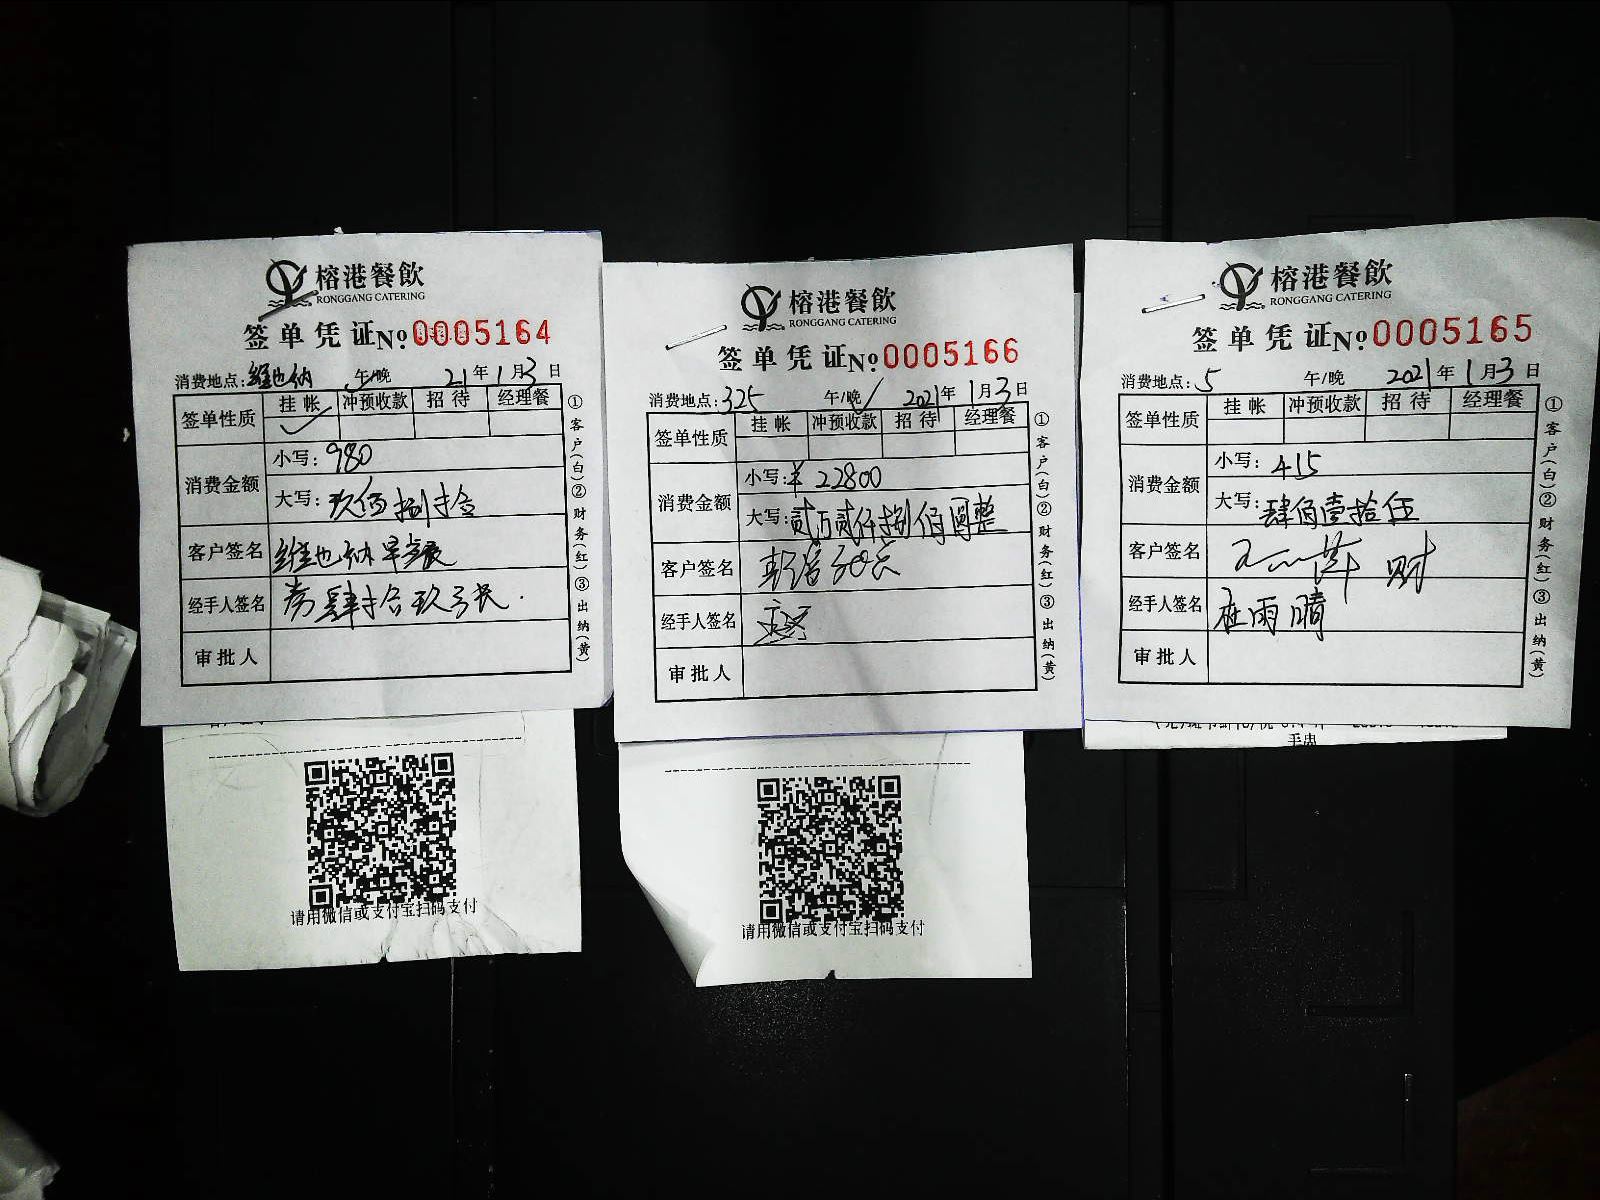 榕港餐飲
RONGGANG CATERING
签单凭证№0005164
消费地点:维也纳 午/晚 21年1月3日
签单性质 挂帐 冲预收款 招待 经理餐
消费金额
小写:980
大写:玖佰捌拾
客户签名 维也纳早餐
经手人签名
审批人
①客户(白)②财务(红)③出纳(黄)
请用微信或支付宝扫码支付
榕港餐飲
RONGGANG CATERING
签单凭证№0005166
消费地点:325 午/晚 2021年1月3日
签单性质 挂帐 冲预收款 招待 经理餐
消费金额
小写:¥22800
大写:贰万贰仟捌佰圆整
客户签名
经手人签名
审批人
①客户(白)②财务(红)③出纳(黄)
请用微信或支付宝扫码支付
榕港餐飲
RONGGANG CATERING
签单凭证№0005165
消费地点:5 午/晚 2021年1月3日
签单性质 挂帐 冲预收款 招待 经理餐
消费金额
小写:415
大写:肆佰壹拾伍
客户签名 财
经手人签名 雨晴
审批人
①客户(白)②财务(红)③出纳(黄)